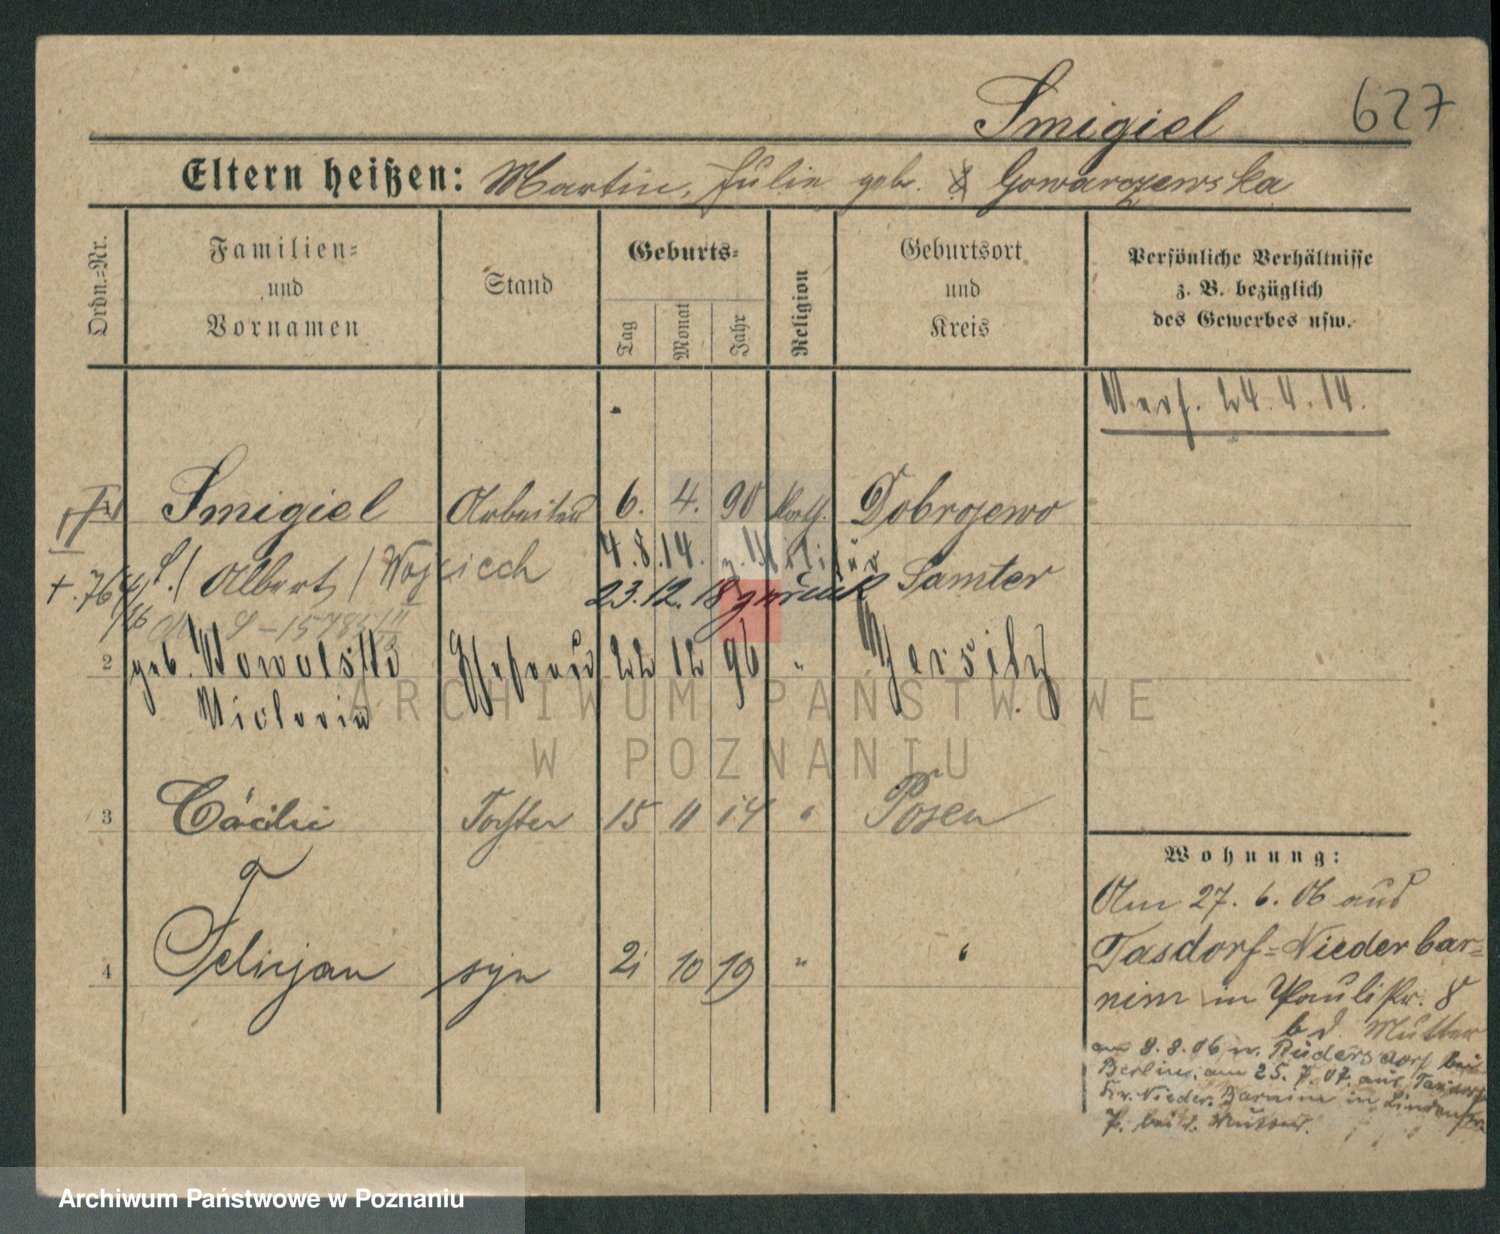 627
Smigiel
Eltern heißen: Martin, Julie geb. Gowarzewska
Ordn.=Nr.
Familien=
und
Vornamen
Stand
Geburts=
Tag
Monat
Jahr
Religion
Geburtsort
und
Kreis
Persönliche Verhältnisse
z. B. bezüglich
des Gewerbes usw.
Verh. 24.4.14.
Smigiel Arbeiter 6. 4. 90 kath. Dobrojewo
4.8.14. z. Militär
/ Albert / Wojciech Samter
23.12.18 zurück
2 geb. Nowalska Ehefrau 22 12 96 " Jersitz
Victoria
3 Cäcilie Tochter 15 11 14 " Posen
4 Felicjan syn 21 10 19 " "
Wohnung:
Am 27. 6. 06 aus
Tasdorf=Niederbar=
nim in Paulikr. 8
b d. Mutter
am 8.8.06 n. Rüdersdorf bei
Berlin, am 25.7.07. aus Tasdorf
Kr. Nieder. Barnim in Lindenstr.
7. bei d. Mutter.
ARCHIWUM PAŃSTWOWE
W POZNANIU
Archiwum Państwowe w Poznaniu